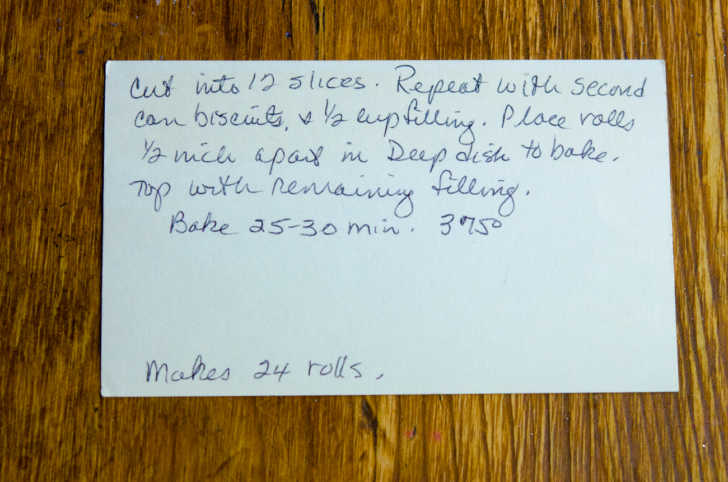 Cut into 12 slices. Repeat with second
can biscuits, & 1/2 cup filling. Place rolls
1/2 inch apart in Deep dish to bake.
Top with remaining filling.
Bake 25-30 min. 375°
Makes 24 rolls.